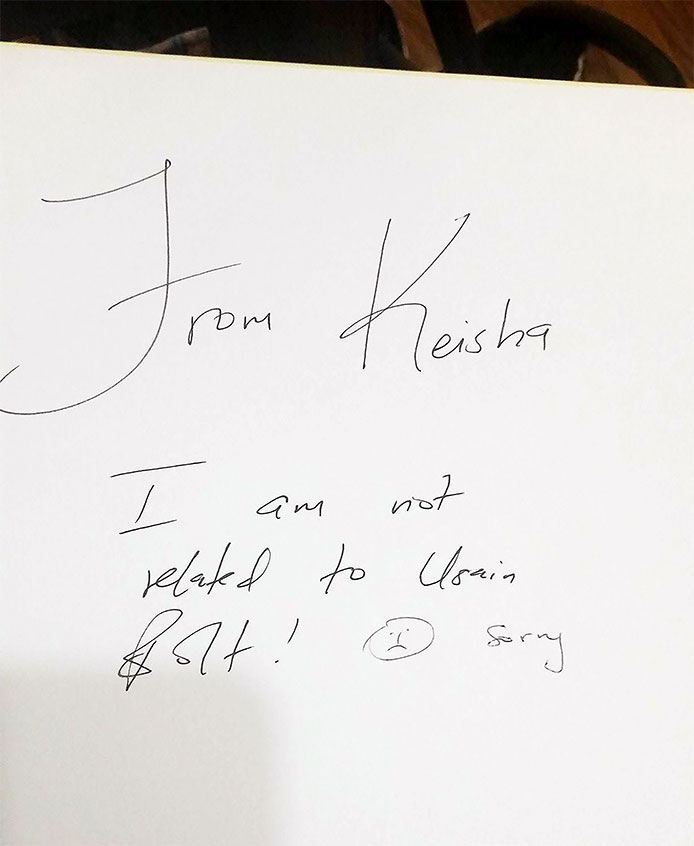 From Keisha
I am not
related to Usain
Bolt! sorry